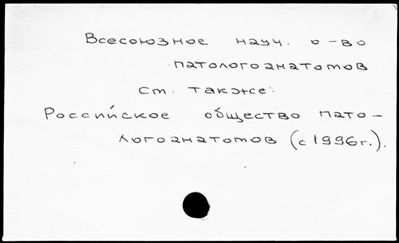 Всесоюзное науч. о-во
патологоанатомов
См. также:
Российское общество пато-
логоанатомов (с 1996г.).